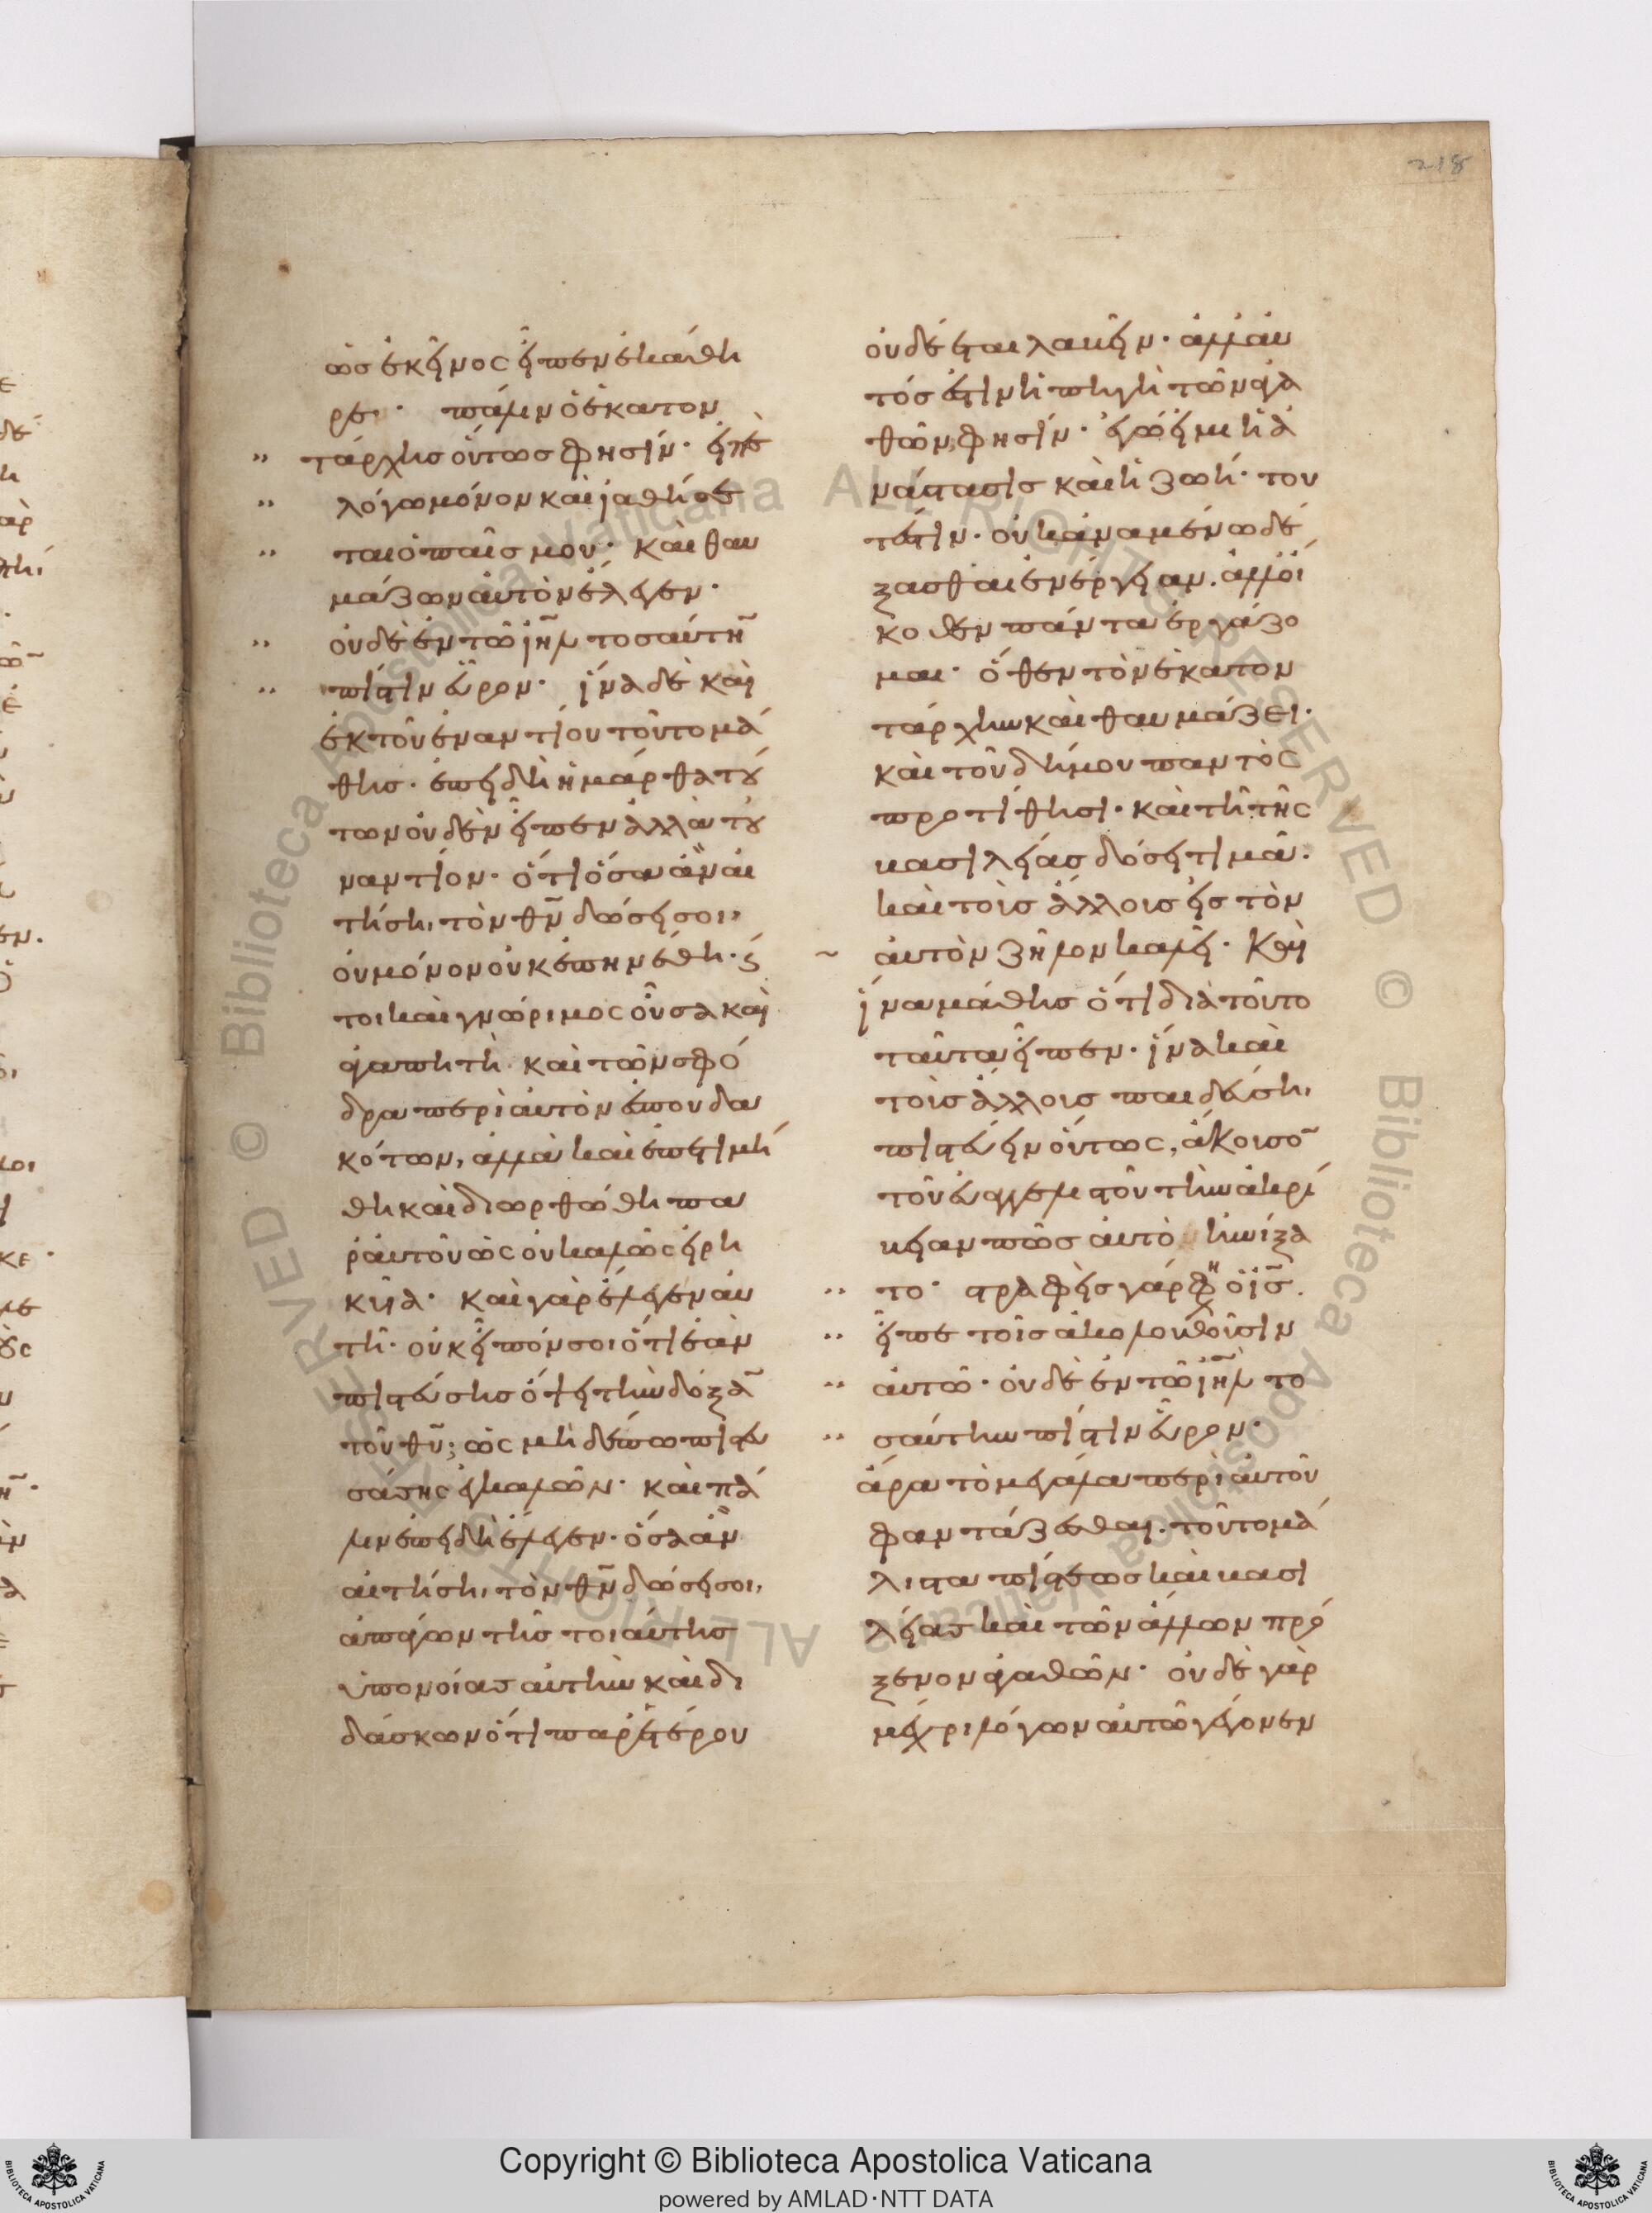 218
ὡσ ἐκεῖνοσ εἶπεν ἐκαθη
ρεν· πάλιν ὁ ἑκατον
τάρχησ οὕτωσ φησίν· εἰπὲ
λόγω μόνον καὶ ἰαθήσε
ται ὁ παῖσ μου· καὶ θαυ
μάζων αὐτὸν ἔλεγεν·
οὐδὲ ἐν τῶ ιηλ τοσαύτη
πίστιν εὗρον· ἵνα δὲ καὶ
ἐκ τοῦ ἐναντίου τοῦτο μά
θησ· ἐπειδὴ ἡ μάρθα τού
των οὐδὲν εἶπεν ἀλλὰ του
ναντίον· ὅτι ὅσα ἂν αἰ
τήση, τὸν θν δώσει σοι,
οὐ μόνον οὐκ ἐπηνέθη· καί
τοι καὶ γνώριμοσ οὖσα καὶ
ἀγαπητὴ καὶ τῶν σφό
δρα περὶ αὐτὸν ἐσπουδα
κότων, ἀλλὰ καὶ ἐπετιμή
θη καὶ διωρθώθη πα
ρ αὐτοῦ ὡσ οὐ καλῶσ εἰρη
κυῖα· καὶ γὰρ ἔλεγεν αὐ
τῆ· οὐκ εἶπόν σοι ὅτι ἐὰν
πιστεύσησ ὄψει τὴν δόξα
τοῦ θυ; ὡσ μὴ δέπω πιστευ
σάσησ ἐγκαλῶν· καὶ πά
λιν ἐπειδὴ ἔλεγεν· ὅσα ἂν
αἰτήση, τὸν θν δώσει σοι,
ἀπάγων τῆσ τοιαύτησ
ὑπονοίασ αὐτὴν καὶ δι
δάσκων ὅτι παρ ἑτέρου
οὐδὲ εται λαβεῖν· ἀλλ αὐ
τόσ ἐστιν ἡ πηγὴ τῶν ἀγα
θῶν, φησίν· ἐγώ εἰμι ἡ ἀ
νάστασισ καὶ ἡ ζωή· του
τέστιν· οὐκ ἀναμένω δέ
ξασθαι ἐνέργειαν. ἀλλ οἴ
κοθεν πάντα ἐργάζο
μαι· ὅθεν τὸν ἑκατον
τάρχην καὶ θαυμάζει·
καὶ τοῦ δήμου παντὸσ
προτίθησι· καὶ τῆ τῆσ
βασιλείασ δόσει τιμᾶ·
καὶ τοὺσ ἄλλουσ εἰσ τὸν
αὐτὸν ζῆλον καλεῖ· καὶ
ἵνα μάθησ ὅτι διὰ τοῦτο
ταῦτα εἶπεν· ἵνα καὶ
τοὺσ ἄλλουσ παιδεύση,
πιστεύειν οὕτωσ, ἄκουσο
τοῦ εὐαγγελιστοῦ τὴν ἀκρί
βειαν πῶσ αὐτὸ ἠνίξα
το· στραφεὶσ γάρ φη ὁ ισ.
εἶπε τοῖσ ἀκολουθοῦσιν
αὐτῶ· οὐδὲ ἐν τῶ ιηλ το
σαύτην πίστιν εὗρον·
ἄρα τὸ μεγάλα περὶ αὐτοῦ
φαντάζεσθαι· τοῦτο μά
λιστα πίστεωσ καὶ βασι
λείασ καὶ τῶν ἄλλων πρό
ξενον ἀγαθῶν· οὐδὲ γὰρ
μέχρι λόγων αὐτῶ γέγονεν
Copyright © Biblioteca Apostolica Vaticana
powered by AMLAD·NTT DATA